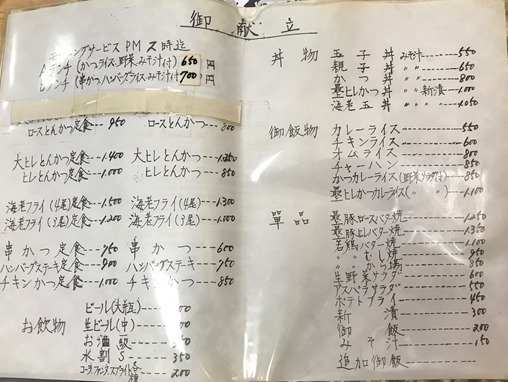 御献立
サービス PM 2時迄
Aランチ (かつライス、野菜、みそ汁付) 650円
Bランチ (串かつ、ハンバーグライス、みそ汁付) 700円
ロースとんかつ定食 --- 950
ロースとんかつ --- 800
大ヒレとんかつ --- 1.400
大ヒレとんかつ
ヒレとんかつ --- 1.000
ヒレとんかつ --- 850
海老フライ(4尾)定食 --- 1.500
海老フライ(4尾) --- 1.300
海老フライ(3尾)定食 --- 1.200
海老フライ(3尾) --- 1.000
串かつ定食 --- 750
串かつ --- 600
ハンバーグステーキ定食 --- 900
ハンバーグステーキ --- 750
チキンかつ定食 --- 1.000
チキンかつ --- 850
お飲物
ビール(大瓶)
生ビール(中)
お酒 一級
水割 S --- 350
コーラ、ファンタ、スプライト各種 200
丼物
玉子丼 みそ汁 --- 550
親子丼 〃 --- 650
かつ丼 〃 --- 800
ヒレかつ丼 〃 新漬 --- 1.000
海老玉丼 〃 〃 --- 1.050
御飯物
カレーライス --- 550
チキンライス --- 600
オムライス --- 800
チャーハン --- 850
かつカレーライス(野菜サラダ付) 850
ヒレかつカレーライス(〃 〃) 1.100
單品
豚ロースバター焼 --- 1.250
豚ヒレバター焼 --- 1.350
若鶏バター焼 --- 1.100
〃 むし焼 --- 950
〃 から揚 --- 850
生野菜サラダ --- 600
アスパラサラダ --- 550
ポテトフライ --- 450
新漬 --- 300
御飯 --- 200
みそ汁 --- 150
追加御飯